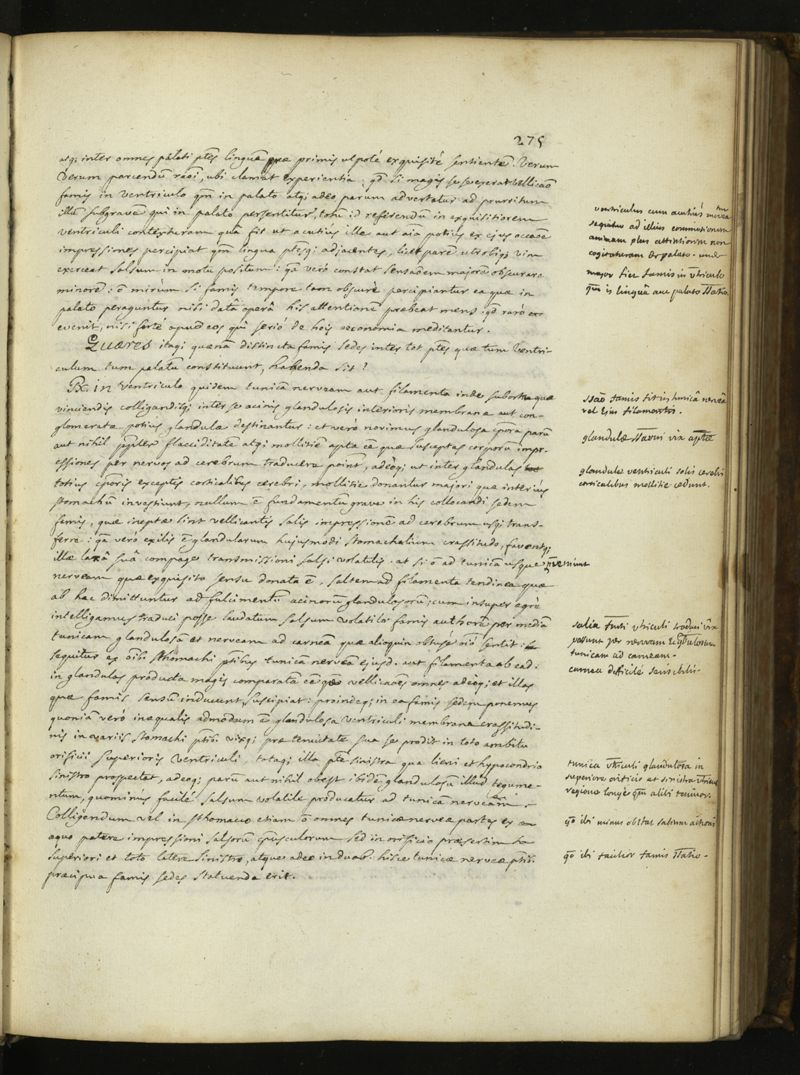 275
atq; inter omnes palati ptes linguā præ primis utpote exquisitè sentientē. Verum
Verum parcendū rāoi, ubi clamat experientia; qd si magis se exerat vellicāo
famis in ventriculo qm in palato atq; adeo parum advertatur ad pruritum
illū subgrave qui in palato persentitur, totū id referendū in exquisitiorem
ventriculi contexturam quā fit ut acutius ille aut aīa potius ex ejus occāoe
impressiones percipiat qm lingua ptesq; adjacentes, licet parē utrobiq; vim
exerceat salsum in motu positum: qā verò constat sensāoem majorē obscurare
minorē: ō mirum si famis tempore tam obscurè percipiantur ea quæ in
palato peraguntur nisi datâ operâ his attentionē præbeat mens: qd rarò
evenit, nisi fortè apud eos qui seriò de hois œconomia meditantur.
Quæres itaq; quænā distincta famis sedes inter tot ptes quæ tum ventri-
culum tum palatū constituunt, habenda sit?
R. in ventriculo quidem tunicā nerveam aut filamenta inde suborta quæ
vinciendis colligandisq; inter se acinis glandulosis interioris membranæ aut con-
glomeratæ potius glandulæ destinantur: et verò novimus glandulosa cpora parū
aut nihil flacciditate atq; mollitie apta eē quæ susceptas corporū impr-
essiones per nervos ad cerebrum traducere possint, adeoq; ut inter glandulas
totius cporis exceptis corticalibus cerebri, mollitie donantur majori quæ interius
stomachū investiunt, nullum ē fundamentū grave in his collocandi sedem
famis, quæ ineptæ sint vellicantis salis impressionē ad cerebrum usq; trans-
ferre: qā verò exilis ē glandularum hujusmodi stomachalium crassitudo, faventq;
illæ laxâ suâ compage transmissioni salsi volatilis. at si ō ad tunicā usque pveniunt
nerveam quæ exquisito sensu donata ē, saltem ad filamenta tendinea quæ
ab hac dimittuntur ad fulcimentū acinorū glandulosorū; cum insuper ægrè
intelligamus traduci posse laudatum salsum volatile famis authorē per mediā
tunicam glandulosā et nerveam ad carneā quæ alioquin obtusè oīo sentit:
sequitur ex oibs stomachi ptibus tunicā nerveā ejusd. aut filamenta ab ead.
in glandulas producta magis comparatā eē vellicāoes omnes adeoq; et illas
quæ famis sensū inducunt, suscipiat: proindeq; in ea famis sedem ponemus
quoniā verò inæqualis admodum ē glandulosa ventriculi membrana crassitudi-
nis in variis stomachi ptibs vixq; præ tenuitate sua se prodit in toto ambitu
orificii superioris ventriculi totaq; illa pte sinistra quâ lieni et hypocondrio
sinistro prospectat, adeoq; parū aut nihil obest ibidē glandulosū illud tegume-
ntum, quominus facilè salsum volatile producatur ad tunicā nerveam:
Colligendum vel in stomacho etiam ō omnes tunicæ nerveæ partes ex
æquo patere impressioni salsorū cpusculorum sed in orificio præsertim
superiori et toto latere sinistro, atque adeo in duab. hisce tunicæ nerveæ ptib.
præcipua famis sedes statuenda erit.
ventriculus cum acutius
sequitur ad illius commotionem
animam plus attentiorem
cogitaturam de palato. unde
major fiet famis in vtriculo
qm in linguâ aut palato stāio
stāo famis fit in tunicâ nerveâ
vel ejus filamentis.
glandulæ
glandulæ ventriculi solis cerebri
corticalibus mollitie cedunt.
salia vtriculi traduci vix
possunt per nerveam et glandulosam
tunicam ad carneam.
carnea difficilè sensibilis.
tunica vtriculi glandulosa in
superiore orificio et sinistra
regione longè qm alibi tenuior.
qo ibi minus obstat salium actioni
qo ibi famis stāio.